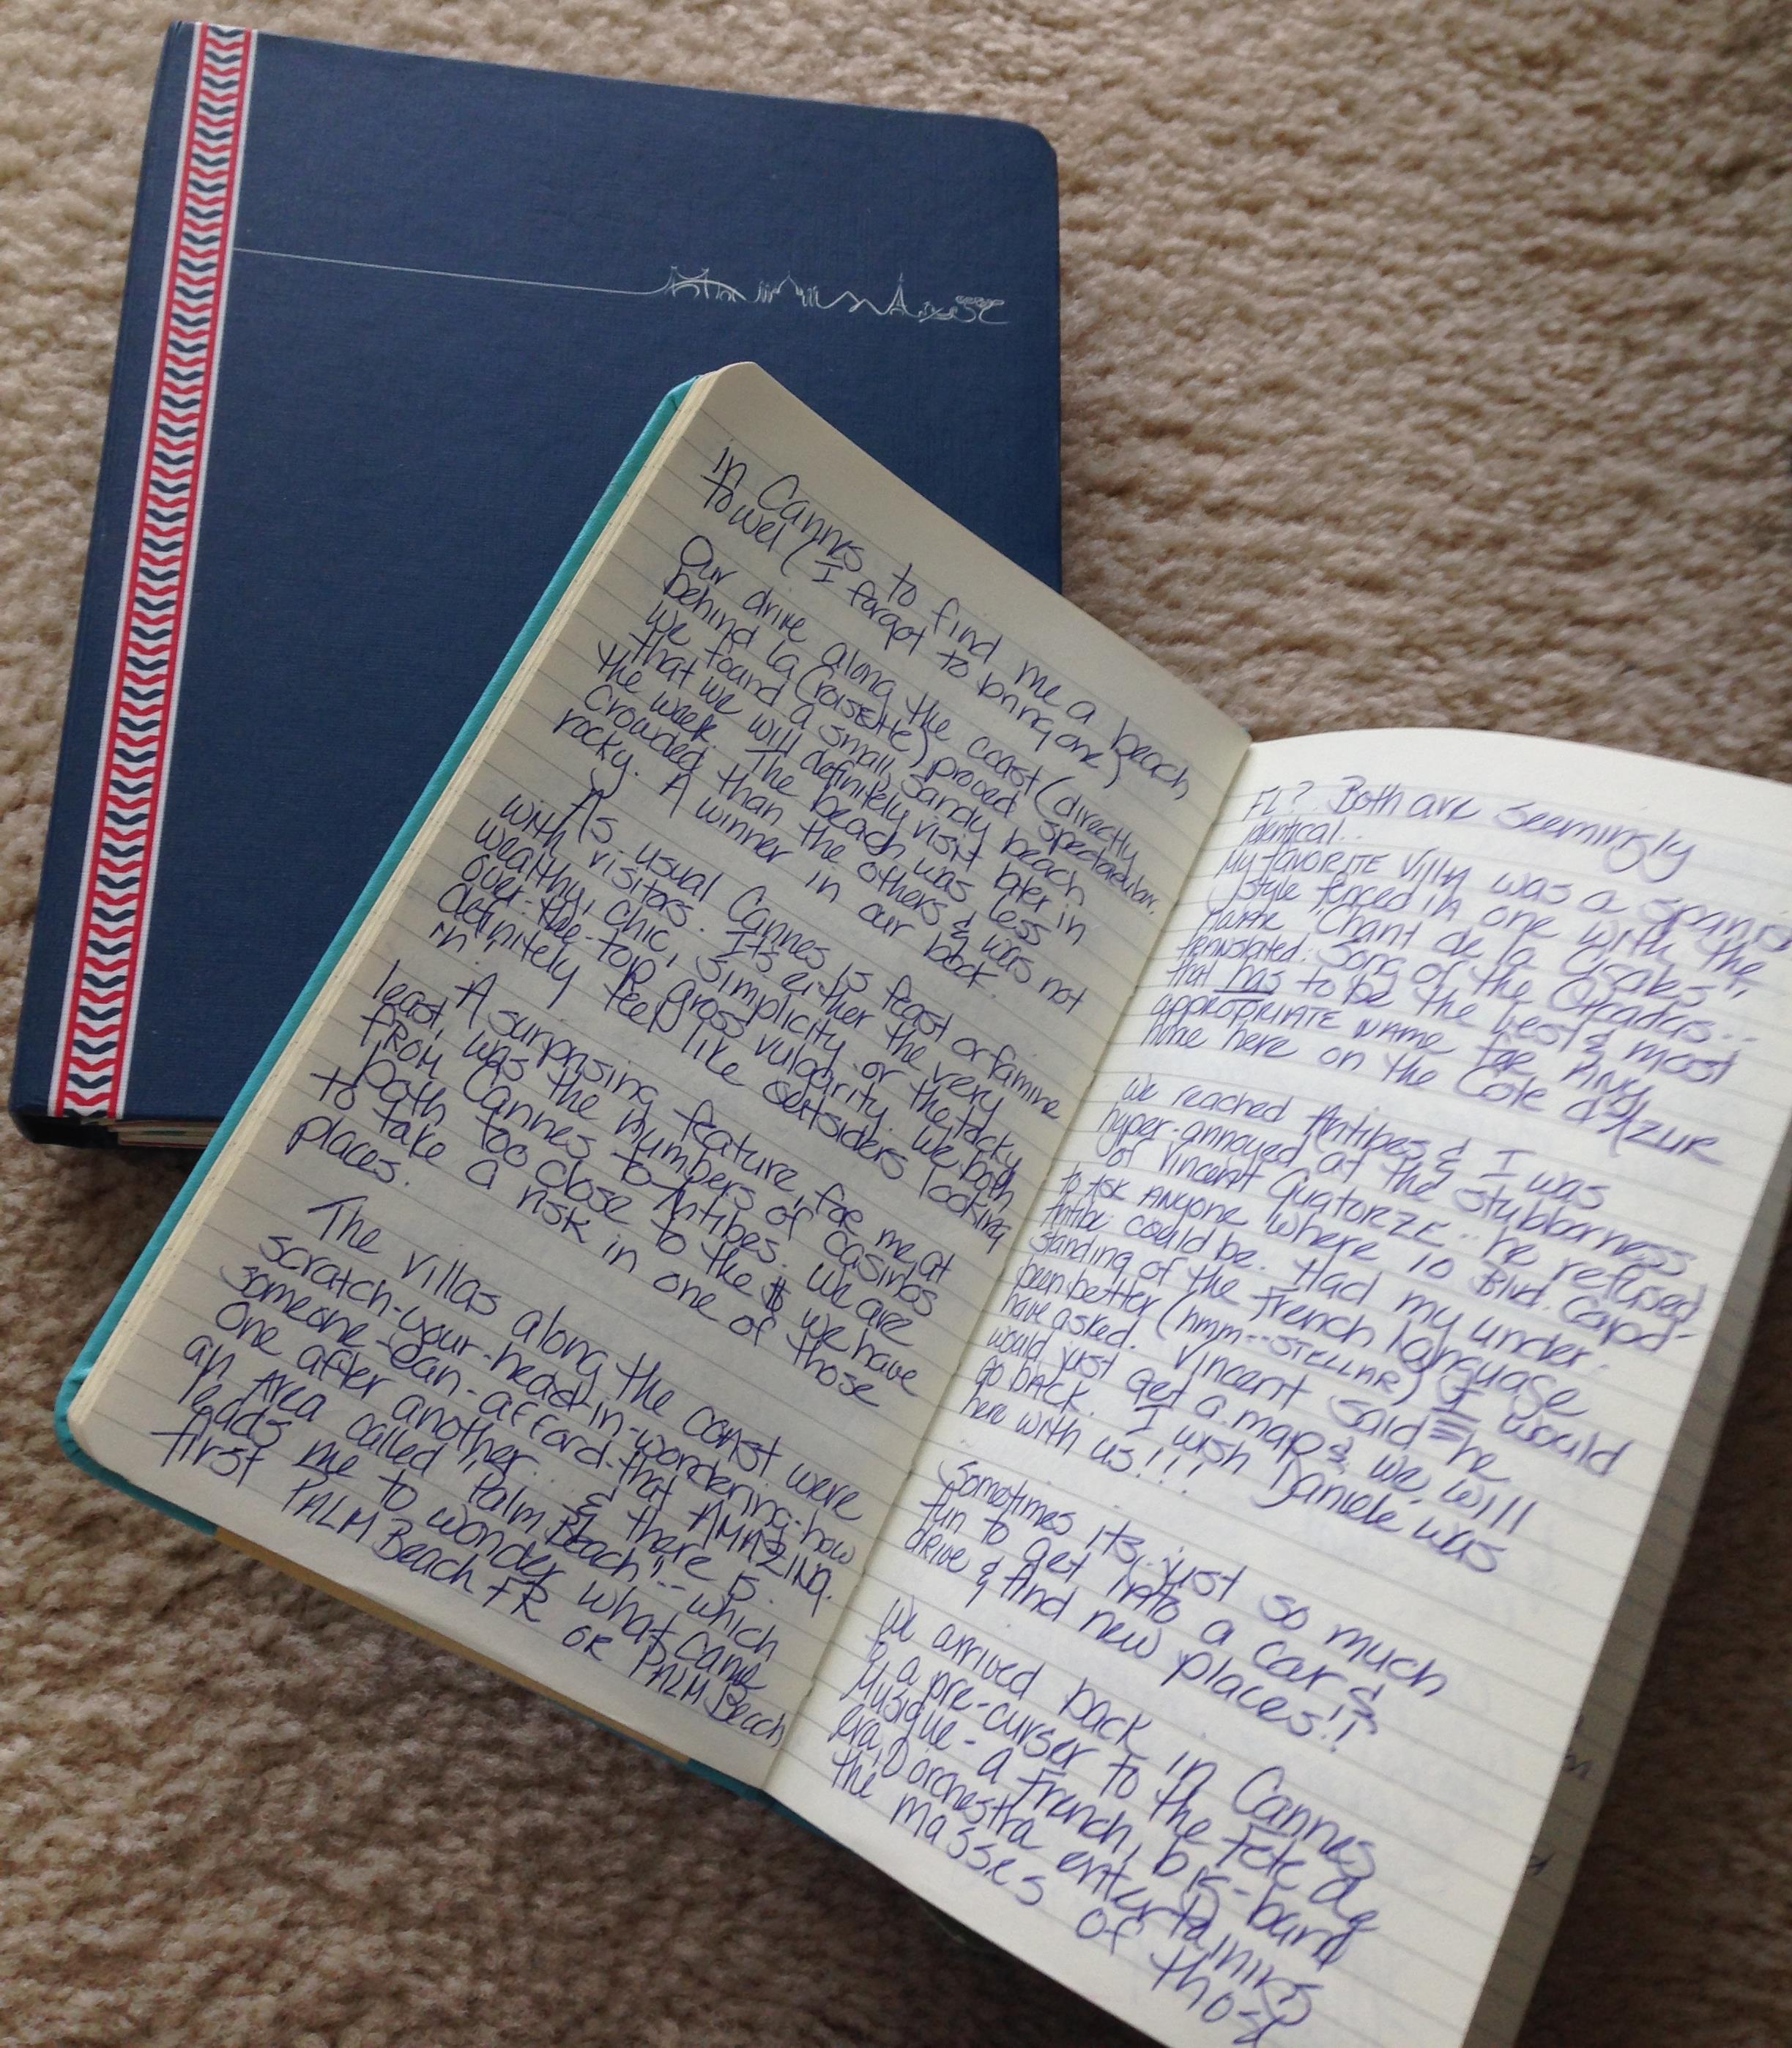 in Cannes to find me a beach
towel (I forgot to bring one)
Our drive along the coast (directly
behind La Croisette) proved spectacular.
We found a small, sandy beach
that we will definitely visit later in
the week. The beach was less
crowded than the others & was not
rocky. A winner in our book.
As usual Cannes is feast or famine
with visitors. It's either the very
wealthy, chic, simplicity or the tacky
over-the-top gross vulgarity. We both
definitely feel like outsiders looking
in.
A surprising feature, for me, at
least, was the numbers of casinos
FROM Cannes to Antibes. We are
both too close to the $ we have
to take a risk in one of those
places.
The villas along the coast were
scratch-your-head-in-wondering-how
someone-can-afford-that AMAZING.
One after another.. & there is
an area called "Palm Beach"-- which
leads me to wonder what came
first PALM Beach FR OR PALM Beach
FL? Both are seemingly
identical..
My FAVORITE Villa was a spanish
style fenced in one with the
name "Chant de la Cigales",
translated: Song of the Cicadas...
that has to be the best & most
APPROPRIATE NAME for Any
home here on the Cote d'AZUR
We reached Antibes & I was
hyper-annoyed at the stubborness
of Vincent Quatorze.. he refused
to ASK ANYONE where 10 Blvd. Cap d-
Antibe could be. Had my under-
standing of the French language
been better (hmm--STELLAR) I would
have asked. Vincent said he
would just get a map & we will
go back. I wish Daniele was
here with us!!!
Sometimes its just so much
fun to get into a car &
drive & find new places!!
We arrived back in Cannes
to a pre-curser to the Fete de
Musique - a French, big-band
era, orchestra entertaining
the masses of those